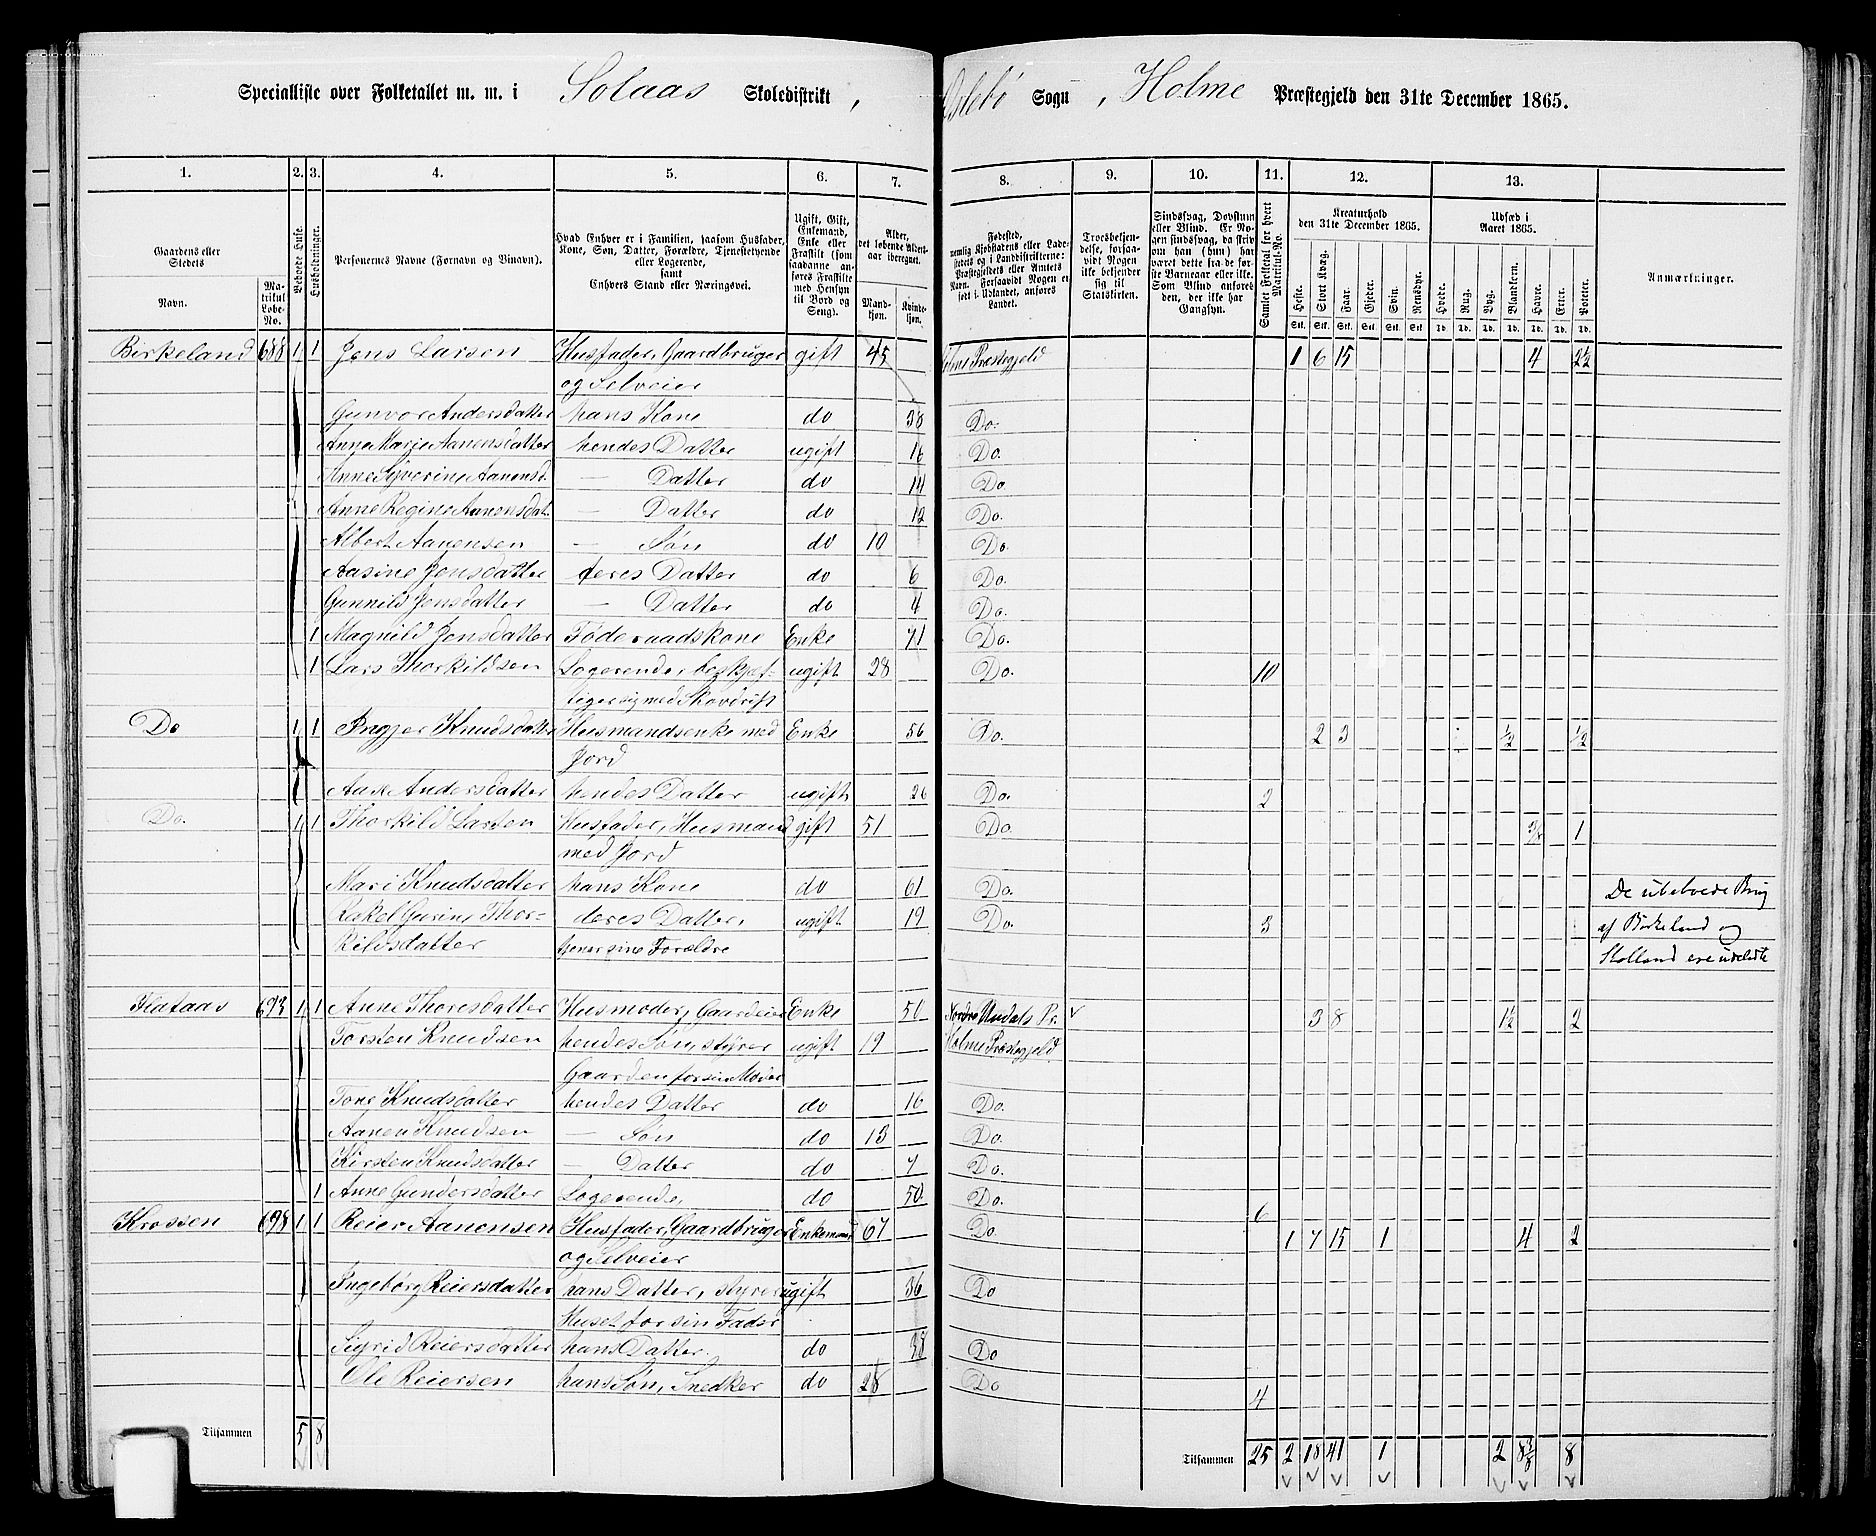 Specialliste over Folketallet m. m. i Solaas Skoledistrikt, Øslebø Sogn, Holme Præstegjeld den 31te December 1865.
1. 2. 3. 4. 5. 6. 7. 8. 9. 10. 11. 12. 13.
Gaardens eller Stedets
Navn.
Matrikul Løbe-No.
Beboede Huse.
Husholdninger.
Personernes Navne (Fornavn og Tilnavn).
Hvad Enhver er i Familien, saasom Husfader, Kone, Søn, Datter, Forældre, Tjenestetyende eller Logerende,
samt
Enhvers Stand eller Næringsvei.
Ugift, Gift, Enkemand, Enke eller Fraskilt (som saadanne anføres Fraskilte med Hensyn til Bord og Seng).
Alder, det løbende Aldersaar iberegnet.
Mandkjøn.
Kvindekjøn.
Fødested,
nemlig Kjøbstadens eller Ladestedets og i Landdistrikterne: Præstegjeldets eller Amtets Navn. Forsaavidt Nogen er født i Udlandet, anføres Landet.
Troesbekjendelse, forsaavidt Nogen ikke bekjender sig til Statskirken.
Sindssvag, Døvstum eller Blind. Er Nogen sindssvag, da skrives om han (hun) har været dette fra de første Barneaar eller ikke. Som Blind anføres den, der ikke har Gangsyn.
Samlet Folketal for hvert Matrikul-No.
Kreaturhold
den 31te December 1865.
Heste. Stort Kvæg. Faar. Gjeder. Svin. Rensdyr.
Stk. Stk. Stk. Stk. Stk. Stk.
Udsæd i
Aaret 1865.
Hvede. Rug. Byg. Blandkorn. Havre. Erter. Poteter.
Td. Td. Td. Td. Td. Td. Td.
Anmærkninger.
Birkeland 688 1 1 Jens Larsen Husfader, Gaardbruger gift 45 Holme Præstegjeld 1 6 15 4 2½
og Selveier
Gunvor Andersdatter hans Kone do 38 Do.
Anne Marie Aanensdatter hendes Datter ugift 16 Do.
Anne Syverine Aanensd. — Datter do 14 Do.
Anne Regine Aanensdat. — Datter do 12 Do.
Albert Aanensen — Søn do 10 Do.
Aasine Jensdatter deres Datter do 6 Do.
Gunnild Jensdatter — Datter do 4 Do.
1 Magnild Jensdatter Føderaadskone Enke 71 Do.
1 Lars Thorkildsen Logerende, beskjæf- ugift 28 Do. 10
tiger sig med Skovdrift
Do 1 1 Ingjer Knudsdatter Husmandsenke med Enke 56 Do. 2 3 ½ ½
Jord
Aase Andersdatter hendes Datter ugift 26 Do. 2
Do. 1 1 Thorkild Larsen Husfader, Husmand gift 51 Do. 3/8 1
med Jord
Mari Knudsdatter hans Kone do 61 Do. De ubeboede Brug
Rakel Gurine Thor- deres Datter, ugift 19 Do. 3 af Birkeland og
kildsdatter tjener sine Forældre Stolland ere udeladte
Flataas 693 1 1 Anne Thoresdatter Husmoder, Gaardeier Enke 50 Nordre Undals Pr. 3 8 1½ 2
Torsten Knudsen hendes Søn, styrer ugift 19 Holme Præstegjeld
Gaarden for sin Moder
Tone Knudsdatter hendes Datter do 16 Do.
Aanen Knudsen — Søn do 13 Do.
Kirsten Knudsdatter — Datter do 7 Do.
1 Anne Gundersdatter Logerende, do 50 Do. 6
Krossen 698 1 1 Reier Aanensen Husfader, Gaardbruger Enkemand 67 Do. 1 7 15 1 4 2
og Selveier
Ingeborg Reiersdatter hans Datter, styrer ugift 36 Do
Huset for sin Fader
Sigrid Reiersdatter hans Datter. do 38 Do
Ole Reiersen hans Søn, Snedker do 28 Do 4
Tilsammen 5 8 Tilsammen 25 2 18 41 1 2 8 3/8 8